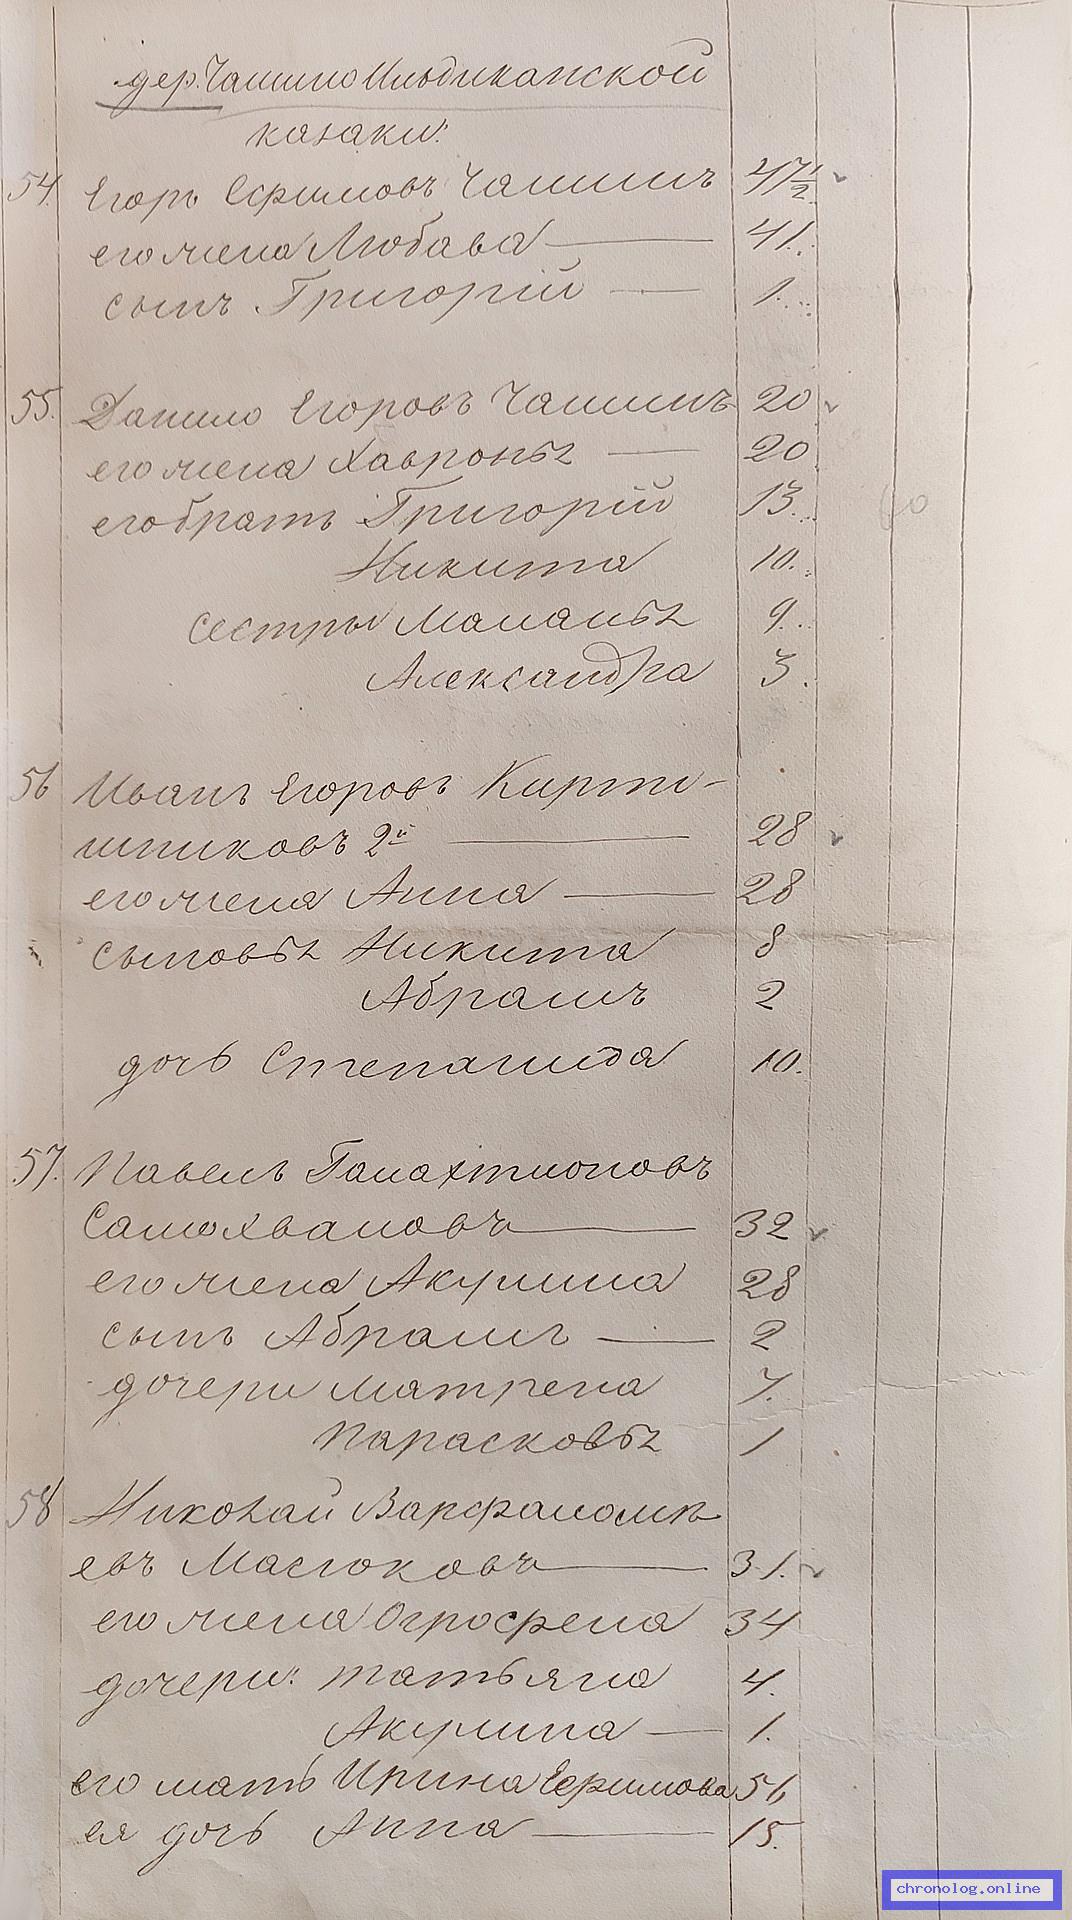 дер. Чашино Ильдиканской
казаки:
54. Егоръ Ефимовъ Чашинъ 47 1/2
его жена Любава 41.
сынъ Григорій 1.
55. Данило Егоровъ Чашинъ 20
его жена Хавронья 20
его братъ Григорій 13.
Никита 10.
сестры Маланья 9.
Александра 3.
56 Иванъ Егоровъ Кирпи-
шниковъ 2й 28
его жена Анна 28
сыновья Никита 8
Абрамъ 2
дочь Степанида 10.
57. Павелъ Галахтионовъ
Самохваловъ 32
его жена Акулина 28
сынъ Абрамъ 2
дочери Матрена 7.
Парасковья 1
58 Николай Варфаломѣ
евъ Маслоковъ 31.
его жена Огрофена 34
дочери: Татьяна 4.
Акулина 1.
его мать Ирина Ефимова 56
ея дочь Анна 15.
chronolog.online